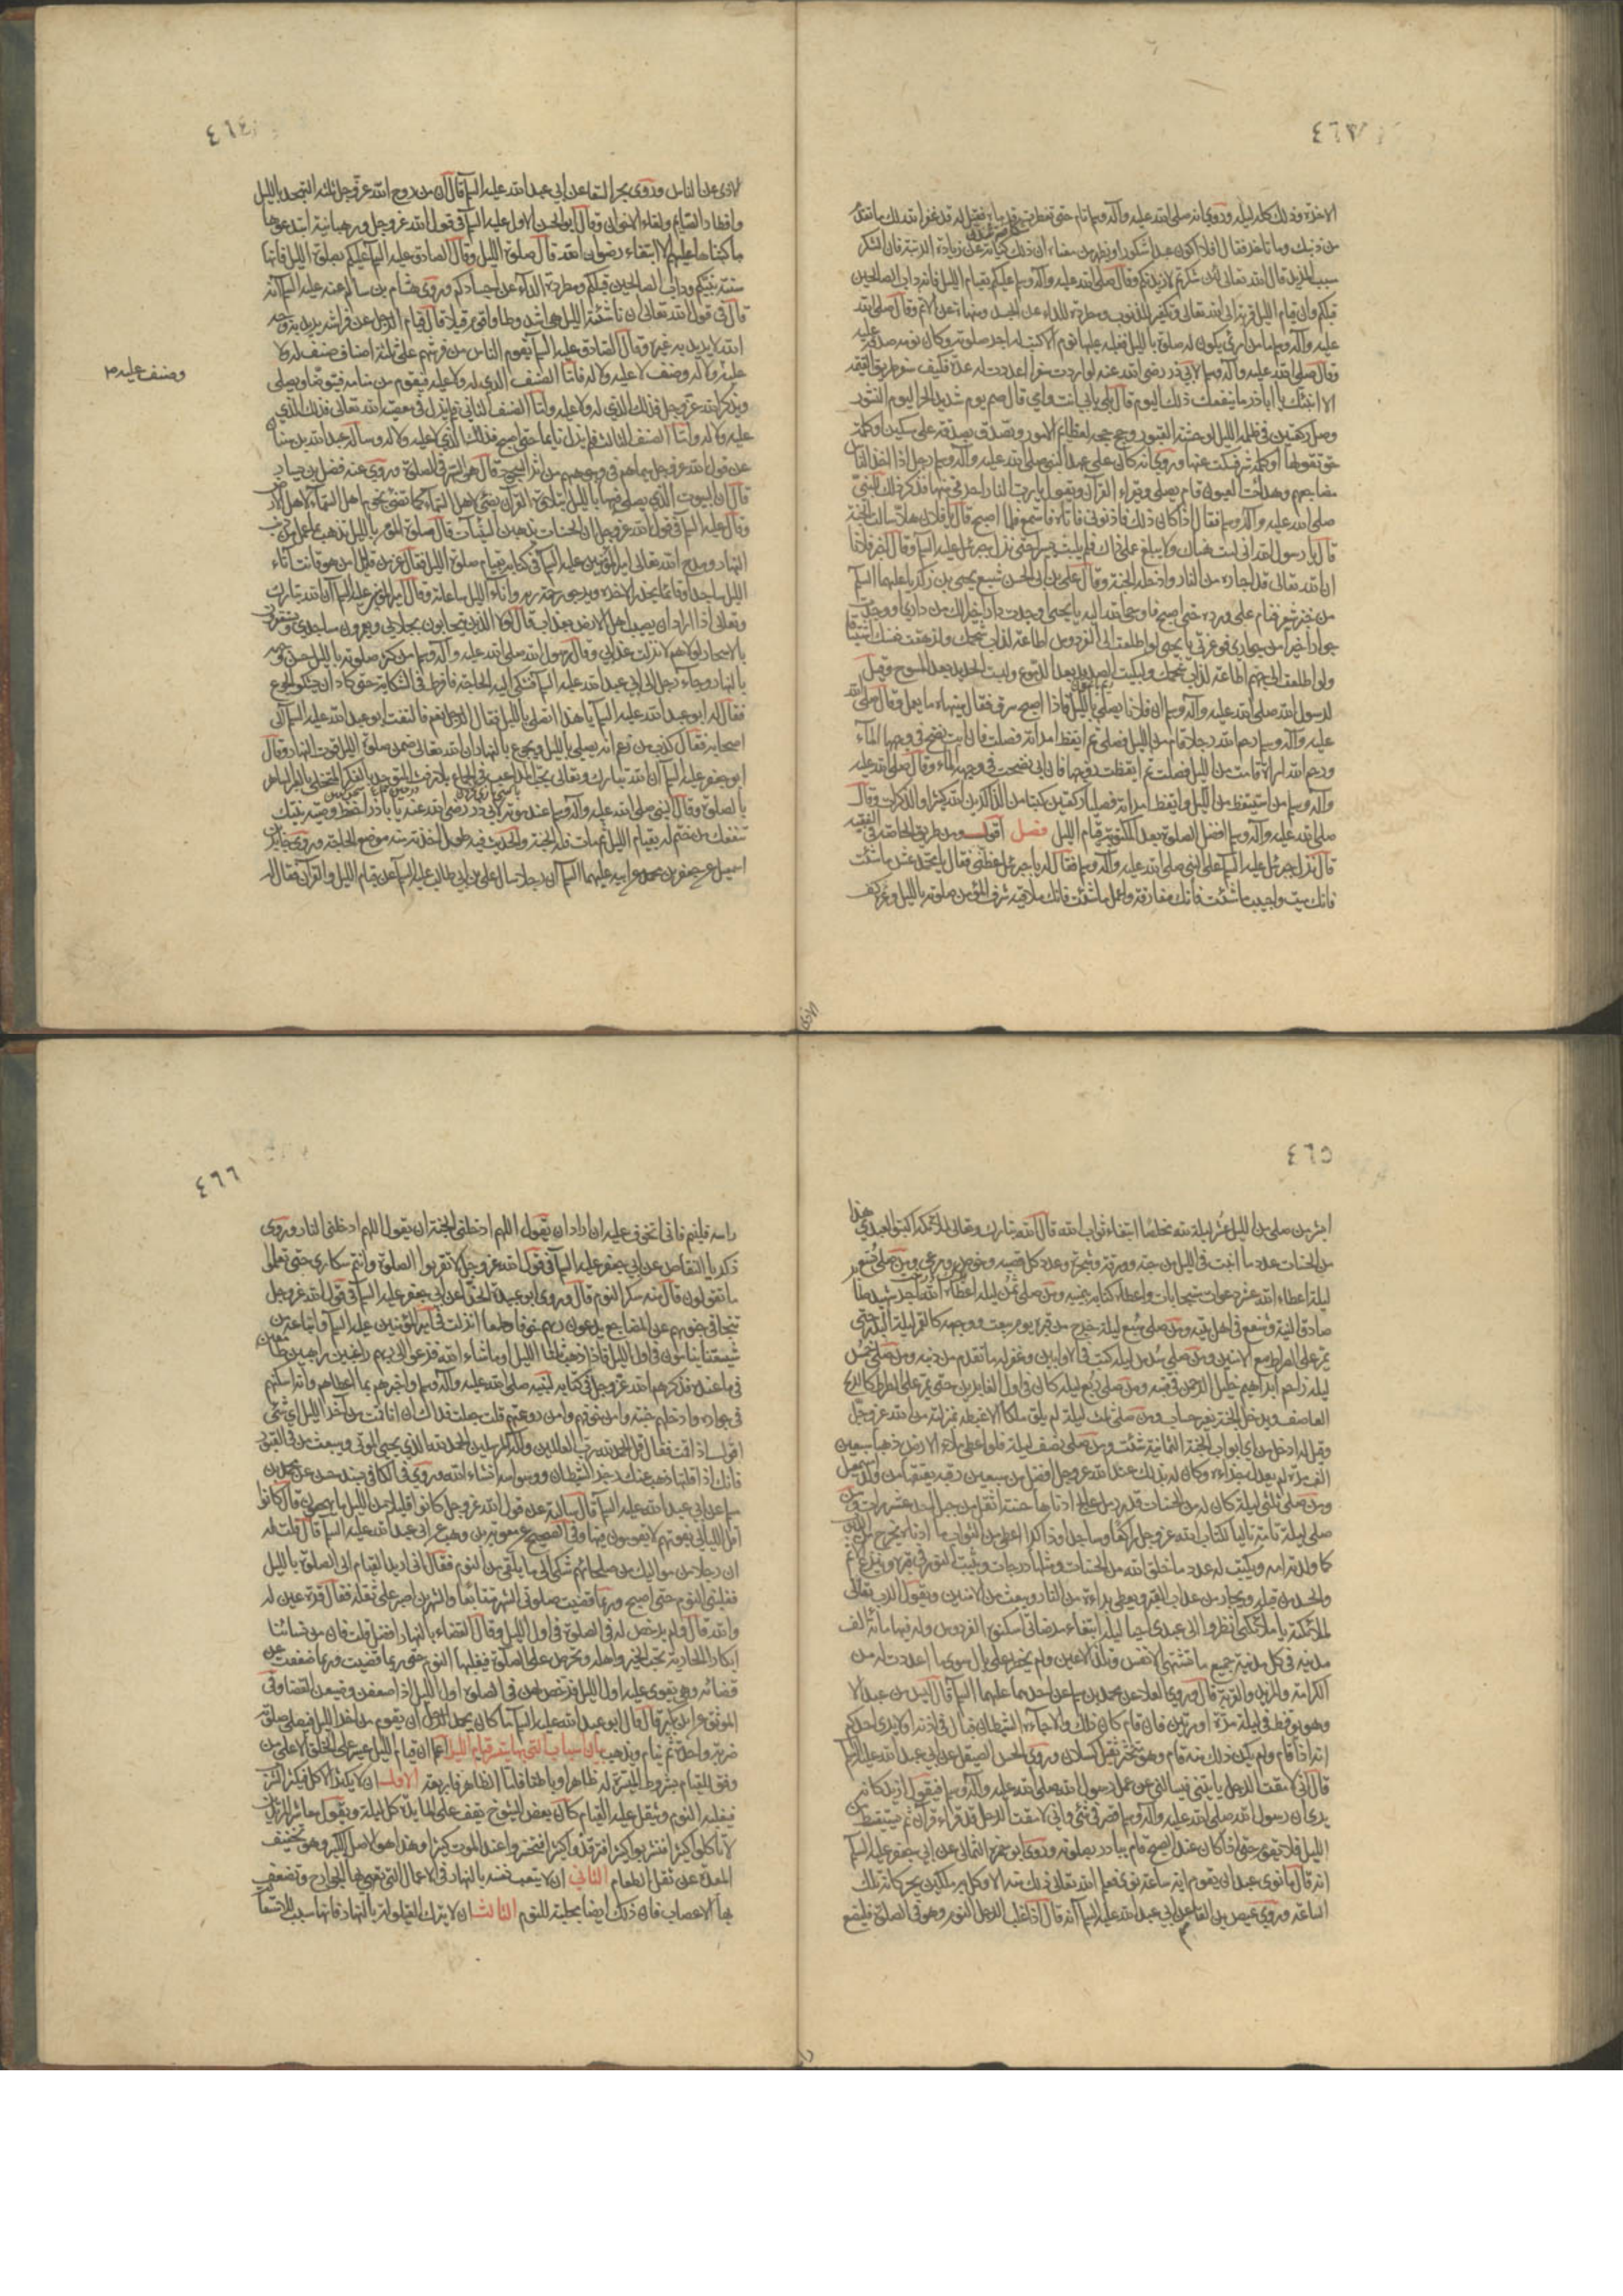 ٤٦٣
الآخرة وذلك كله ليله وروي انه صلى الله عليه وآله وسلم قام حتى تفطرت قدماه فقيل له قد غفر الله لك ما تقدم
من ذنبك وما تأخر فقال افلا اكون عبدا شكورا ويظهر من معناه ان ذلك كناية عن زيادة الرتبة فان الشكر
سبب المزيد قال الله تعالى لئن شكرتم لأزيدنكم وقال صلى الله عليه وآله وسلم عليكم بقيام الليل فانه دأب الصالحين
قبلكم وان قيام الليل قربة الى الله تعالى وتكفير للذنوب ومطردة للداء عن الجسد ومنهاة عن الاثم وقال صلى الله
عليه وآله وسلم ما من امرئ يكون له صلوة بالليل فغلبه عليها نوم الا كتب له اجر صلوته وكان نومه صدقة عليه
وقال صلى الله عليه وآله وسلم لابي ذر رضي الله عنه لو اردت سفرا اعددت له عدة فكيف سفر طريق القيمة
الا انبئك يا اباذر ما ينفعك ذلك اليوم قال بلى بابي انت وامي قال صم يوم شديد الحر ليوم النشور
وصل ركعتين في ظلمة الليل لوحشة القبور وحج حجة لعظايم الامور وتصدق بصدقة على مسكين او كلمة
حق تقولها او كلمة شر تسكت عنها وروي انه كان على عهد النبي صلى الله عليه وآله وسلم رجل اذا اخذ الناس
مضاجعهم وهدأت العيون قام يصلي ويقراء القرآن ويقول يا رب النار اجرني منها فذكر ذلك للنبي
صلى الله عليه وآله وسلم فقال اذا كان ذلك فاذنوني فاتاه فاستمع فلما اصبح قال يا فلان هلا سألت الجنة
قال يا رسول الله اني لست هناك ولا يبلغ عملي ذاك فلم يلبث يسيرا حتى نزل جبرئيل عليه السلم وقال اخبر فلانا
ان الله تعالى قد اجاره من النار وادخله الجنة وقال علي بن ابي الحسن شبع يحيى بن زكريا عليهما السلم
من خبز شعير فنام على ورده حتى اصبح فاوحى الله اليه يا يحيى اوجدت دارا خيرا لك من داري او وجدت
جوارا خيرا من جواري فوعزتي يا يحيى لو اطلعت الى الفردوس اطلاعة لذاب شحمك ولزهقت نفسك اشتياقا
ولو اطلعت الى جهنم اطلاعة لذاب شحمك ولبكيت الصديد بعد الدموع ولبست الحديد بعد المسوح وقيل
لرسول الله صلى الله عليه وآله وسلم ان فلانا يصلي بالليل فاذا اصبح سرق فقال سينهاه ما يعمل وقال صلى الله
عليه وآله وسلم رحم الله رجلا قام من الليل فصلى ثم ايقظ امرأته فصلت فان ابت نضح في وجهها الماء
ورحم الله امراة قامت من الليل فصلت ثم ايقظت زوجها فان ابى نضحت في وجهه الماء وقال صلى الله عليه
وآله وسلم من استيقظ من الليل وايقظ امرأته فصليا ركعتين كتبا من الذاكرين الله كثيرا والذاكرات وقال
صلى الله عليه وآله وسلم افضل الصلوة بعد المكتوبة قيام الليل فصل اقول ومن طريق الخاصة في الفقيه
قال نزل جبرئيل عليه السلم على النبي صلى الله عليه وآله وسلم فقال له يا جبرئيل عظني فقال يا محمد عش ما شئت
فانك ميت واحبب ما شئت فانك مفارقه واعمل ما شئت فانك ملاقيه شرف المؤمن صلوته بالليل وعزه كف
٤٦٤
الاذى عن الناس وروى بحر السقا عن ابي عبد الله عليه السلم قال ان من روح الله عز وجل ثلثة التهجد بالليل
وافطار الصايم ولقاء الاخوان وقال ابو الحسن الاول عليه السلم في قول الله عز وجل ورهبانية ابتدعوها
ما كتبناها عليهم الا ابتغاء رضوان الله قال صلوة الليل وقال الصادق عليه السلم عليكم بصلوة الليل فانها
سنة نبيكم ودأب الصالحين قبلكم ومطردة الداء عن اجسادكم وروى هشام بن سالم عنه عليه السلم انه
قال في قول الله تعالى ان ناشئة الليل هي اشد وطأ واقوم قيلا قال قيام الرجل عن فراشه يريد به وجه
الله لا يريد به غيره وقال الصادق عليه السلم يقوم الناس من فرشهم على ثلثة اصناف صنف له ولا
عليه وصنف عليه ولا له وصنف لا عليه ولا له فاما الصنف الذي له ولا عليه فيقوم من منامه فيتوضأ ويصلي
وصنف عليه م
ويذكر الله عز وجل فذلك الذي له ولا عليه واما الصنف الثاني فلم يزل في معصية الله تعالى فذلك الذي
عليه ولا له واما الصنف الثالث فلم يزل نايما حتى اصبح فذلك الذي لا عليه ولا له وسأله عبد الله بن سنان
عن قول الله عز وجل سيماهم في وجوههم من اثر السجود قال هو السهر في الصلوة وروى عنه فضيل بن يسار
قال ان البيوت التي يصلى فيها بالليل بتلاوة القرآن تضئ لاهل السماء كما تضئ نجوم اهل السماء لاهل الارض
وقال عليه السلم في قول الله عز وجل ان الحسنات يذهبن السيئات قال صلوة المؤمن بالليل تذهب بما عمل من ذنب
النهار ومدح الله تعالى امير المؤمنين عليه السلم في كتابه بقيام صلوة الليل فقال عز من قائل امن هو قانت آناء
الليل ساجدا وقائما يحذر الآخرة ويرجو رحمة ربه وآناء الليل ساعاته وقال امير المؤمنين عليه السلم ان الله تبارك
وتعالى اذا اراد ان يصيب اهل الارض بعذاب قال لولا الذين يتحابون بجلالي ويعمرون مساجدي ويستغفرون
بالاسحار لولاهم لانزلت عذابي وقال رسول الله صلى الله عليه وآله وسلم من كثر صلوته بالليل حسن وجهه
بالنهار وجاء رجل الى ابي عبد الله عليه السلم فشكى اليه الحاجة فافرط في الشكاية حتى كاد ان يشكو الجوع
فقال له ابو عبد الله عليه السلم يا هذا اتصلي بالليل فقال الرجل نعم فالتفت ابو عبد الله عليه السلم الى
اصحابه فقال كذب من زعم انه يصلي بالليل ويجوع بالنهار ان الله تعالى ضمن صلوة الليل قوت النهار وقال
ابو جعفر عليه السلم ان الله تبارك وتعالى يحب المداعب في الجماع بلا رفث المتوحد بالفكر المتخلي بالعبر الساهر
بالصلوة وقال النبي صلى الله عليه وآله وسلم عند موته لابي ذر رضي الله عنه يا باذر احفظ وصية نبيك
تنفعك من ختم له بقيام الليل ثم مات فله الجنة والحديث فيه طويل اخذت منه موضع الحاجة وروى جابر بن
اسمعيل عن جعفر بن محمد عن ابيه عليهما السلم ان رجلا سال علي بن ابي طالب عليه السلم عن قيام الليل والقرآن فقال له
٤٦٥
ابشر من صلى من الليل عشر ليلة لله مخلصا ابتغاء ثواب الله قال الله تبارك وتعالى لملائكته اكتبوا لعبدي هذا
من الحسنات عدد ما انبت في الليل من حبة وورقة وشجرة وعدد كل قصبة وخوص ومرعى ومن صلى تسع
ليلة اعطاه الله عشر دعوات مستجابات واعطاه كتابه بيمينه ومن صلى ثمن ليلة اعطاه الله اجر شهيد صابر
صادق النية وشفع في اهل بيته ومن صلى سبع ليلة خرج من قبره يوم يبعث ووجهه كالقمر ليلة البدر حتى
يمر على الصراط مع الآمنين ومن صلى سدس ليلة كتب في الاوابين وغفر له ما تقدم من ذنبه ومن صلى خمس
ليلة زاحم ابراهيم خليل الرحمن في قبته ومن صلى ربع ليلة كان في اول الفايزين حتى يمر على الصراط كالريح
العاصف ويدخل الجنة بغير حساب ومن صلى ثلث ليلة لم يلق ملكا الا غبطه بمنزلته من الله عز وجل
وقيل له ادخل من اي ابواب الجنة الثمانية شئت ومن صلى نصف ليلة فلو اعطي ملاء الارض ذهبا سبعين
الف مرة لم يعدل جزاءه وكان له بذلك عند الله عز وجل افضل من سبعين رقبة يعتقها من ولد اسمعيل
ومن صلى ثلثي ليلة كان له من الحسنات قدر رمل عالج ادناها حسنة اثقل من جبل احد عشر مرات ومن
صلى ليلة تامة تاليا لكتاب الله عز وجل راكعا وساجدا وذاكرا اعطي من الثواب ما ادناه يخرج من الذنوب
كما ولدته امه ويكتب له عدد ما خلق الله من الحسنات ومثلها درجات ويثبت النور في قبره وينزع الاثم
والحسد من قلبه ويجار من عذاب القبر ويعطى براءة من النار ويبعث من الآمنين ويقول الرب تعالى
لملائكته يا ملائكتي انظروا الى عبدي احيا ليله ابتغاء مرضاتي اسكنوه الفردوس وله فيها مائة الف
مدينة في كل مدينة جميع ما تشتهي الانفس وتلذ الاعين ولم يخطر على بال سوى ما اعددت له من
الكرامة والمزيد والقربة قال وروى العلا عن محمد بن مسلم عن احدهما عليهما السلم قال ليس من عبد الا
وهو يوقظ في ليلة مرة او مرتين فان قام كان ذلك والا جاء الشيطان فبال في اذنه اولا يرى احدكم
انه اذا قام ولم يكن ذلك منه قام وهو متخثر ثقيل كسلان وروى الحسن الصيقل عن ابي عبد الله عليه السلم
قال اني لامقت الرجل ياتيني فيسالني عن عمل رسول الله صلى الله عليه وآله وسلم فيقول ازيد كانه
يرى ان رسول الله صلى الله عليه وآله وسلم قصر في شئ واني لامقت الرجل قد قراء قرآن ثم يستيقظ من
الليل فلا يقوم حتى اذا كان عند الصبح قام يبادر بصلوته وروى ابو حمزة الثمالي عن ابي جعفر عليه السلم
انه قال ما نوى عبد ان يقوم اية ساعة نوى فعلم الله تعالى ذلك منه الا وكل به ملكين يحركانه تلك
الساعة وروى عيص بن القاسم عن ابي عبد الله عليه السلم انه قال اذا غلب الرجل النوم وهو في الصلوة فليضع
٤٦٦
راسه فلينم فاني اتخوف عليه ان اراد ان يقول اللهم ادخلني الجنة ان يقول اللهم ادخلني النار وروى
زكريا النقاض عن ابي جعفر عليه السلم في قول الله عز وجل لا تقربوا الصلوة وانتم سكارى حتى تعلموا
ما تقولون قال منه سكر النوم قال وروى ابو عبيدة الحذاء عن ابي جعفر عليه السلم في قول الله عز وجل
تتجافى جنوبهم عن المضاجع يدعون ربهم خوفا وطمعا انزلت في امير المؤمنين عليه السلم واتباعه من
شيعتنا ينامون في اول الليل فاذا ذهب ثلثا الليل او ما شاء الله فزعوا الى ربهم راغبين راهبين طامعين
في ما عنده فذكرهم الله عز وجل في كتابه لنبيه صلى الله عليه وآله وسلم واخبرهم بما اعطاهم وانه اسكنهم
في جواره وادخلهم جنته وآمن خوفهم وآمن روعتهم قلت جعلت فداك ان انا قمت من آخر الليل اي شئ
اقول اذا قمت فقال قل الحمد لله رب العالمين واله المرسلين الحمد لله الذي يحيي الموتى ويبعث من في القبور
فانك اذا قلتها ذهب عنك رجز الشيطان ووسواسه انشاء الله وروى في الكافي بسند حسن عن محمد بن
مسلم عن ابي عبد الله عليه السلم قال سالته عن قول الله عز وجل كانوا قليلا من الليل ما يهجعون قال كانوا
اقل الليالي يفوتهم لا يقومون فيها وفي الصحيح عن معوية بن وهب عن ابي عبد الله عليه السلم قال قلت له
ان رجلا من مواليك من صلحائهم شكى الي ما يلقى من النوم فقال اني اريد القيام الى الصلوة بالليل
فيغلبني النوم حتى اصبح وربما قضيت صلوتي الشهر متتابعا والشهرين اصبر على ثقله فقال قرة عين له
والله قال ولم يرخص له في الصلوة في اول الليل وقال القضاء بالنهار افضل قلت فان من نسائنا
ابكارا الجارية تحب الخير واهله وتحرص على الصلوة فيغلبها النوم حتى ربما قضيت وربما ضعفت عن
قضائه وهي تقوى عليه اول الليل فرخص لهن في الصلوة اول الليل اذا ضعفن وضيعن القضاء وفي
الموثق عن ابن بكير قال قال ابو عبد الله عليه السلم ما كان يحمد الرجل ان يقوم من اخر الليل فيصلي صلوته
ضربة واحدة ثم ينام ويذهب بيان اسباب التي بها يتيسر قيام الليل اعلم ان قيام الليل عسير على الخلق الا على من
وفق للقيام بشروطه الميسرة له ظاهرا وباطنا فاما الظاهر فاربعة الاول ان لا يكثر الاكل فيكثر الشرب
فيغلبه النوم ويثقل عليه القيام كان بعض الشيوخ يقف على المايدة كل ليلة ويقول معاشر المريدين
لا تأكلوا كثيرا فتشربوا كثيرا فترقدوا كثيرا فتخسروا عند الموت كثيرا وهذا هو الاصل الكبير وهو تخفيف
المعدة عن ثقل الطعام الثاني ان لا يتعب نفسه بالنهار في الاعمال التي تعيى بها الجوارح وتضعف
بها الاعصاب فان ذلك ايضا مجلبة للنوم الثالث ان لا يترك القيلولة بالنهار فانها سبب للاستعانة